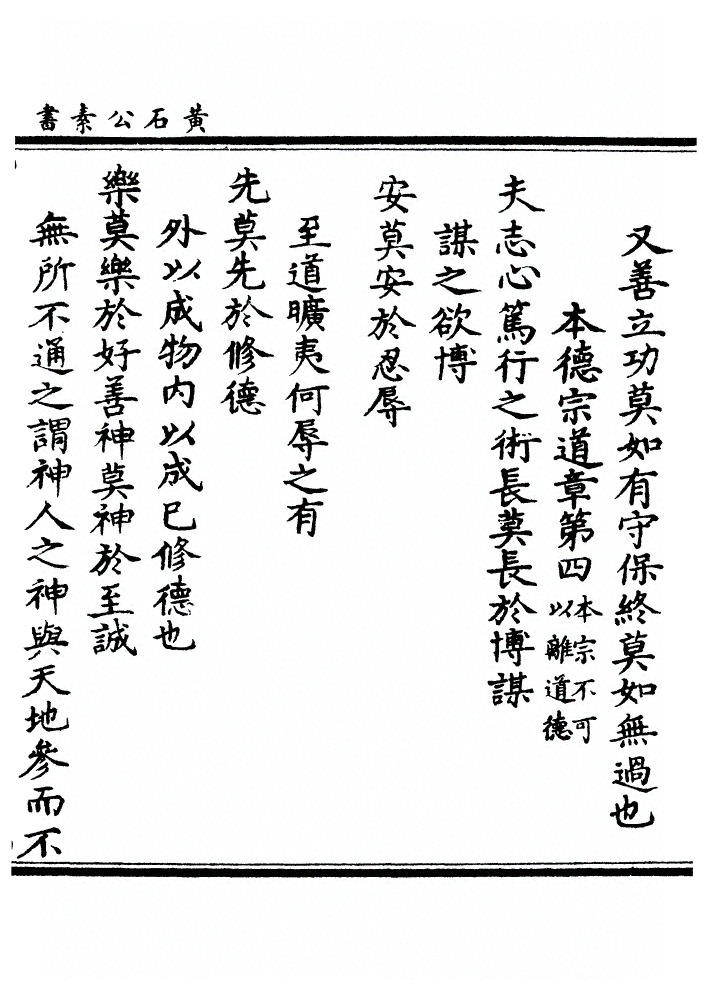 黃石公素書
又善立功莫如有守保終莫如無過也
本德宗道章第四本宗不可
以離道德
夫志心篤行之術長莫長於博謀
謀之欲博
安莫安於忍辱
至道曠夷何辱之有
先莫先於修德
外以成物內以成已修德也
樂莫樂於好善神莫神於至誠
無所不通之謂神人之神與天地參而不